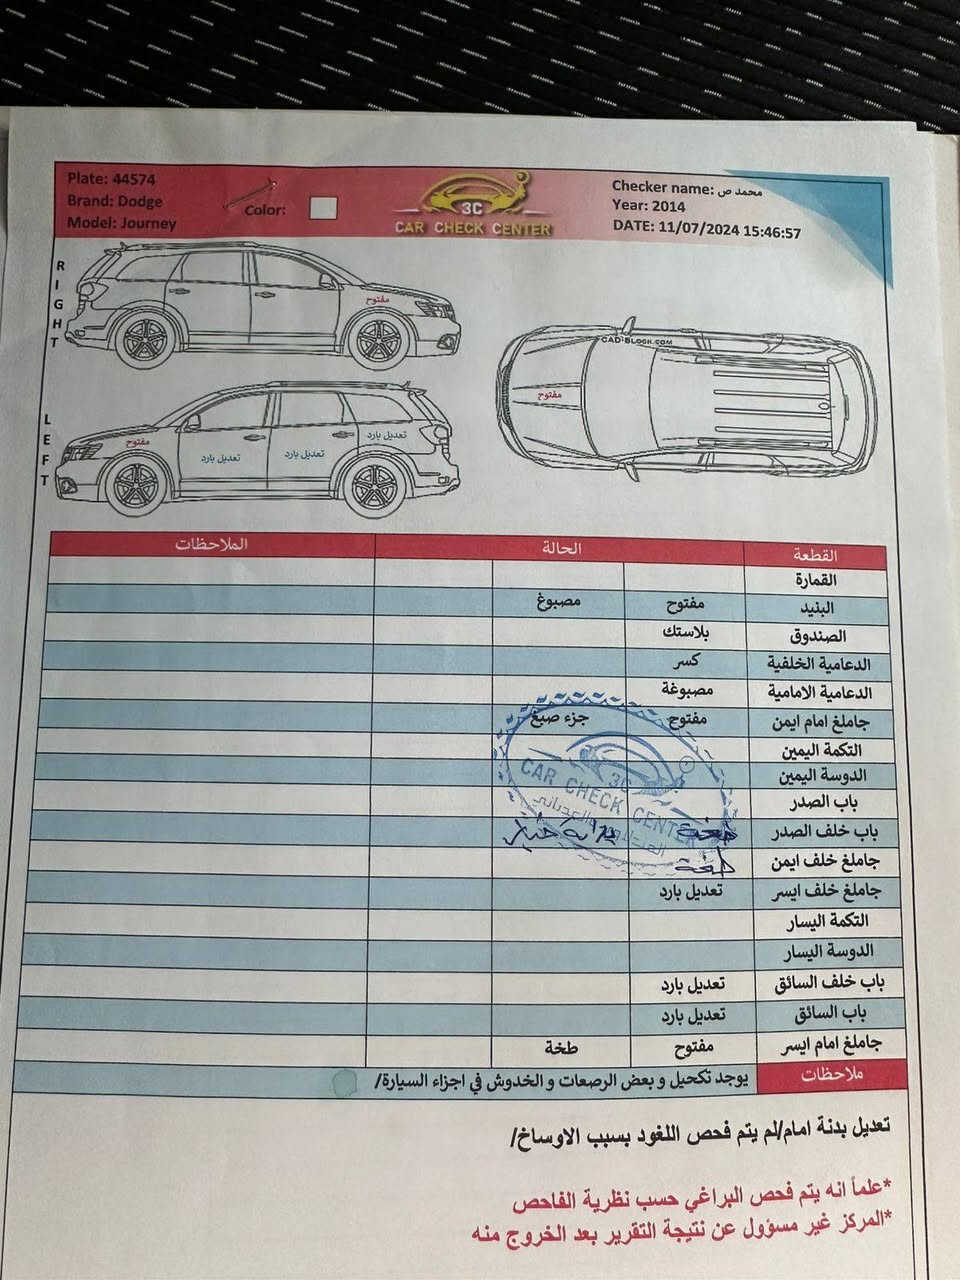 Plate: 44574
Brand: Dodge
Model: Journey
Color:
3C
CAR CHECK CENTER
Checker name: محمد ص
Year: 2014
DATE: 11/07/2024 15:46:57
RIGHT
مفتوح
CAD-BLOCK.COM
مفتوح
LEFT
مفتوح
تعديل بارد
تعديل بارد
تعديل بارد
القطعة الحالة الملاحظات
القمارة
البنيد مفتوح مصبوغ
الصندوق بلاستك
الدعامية الخلفية كسر
الدعامية الامامية مصبوغة
جاملغ امام ايمن مفتوح جزء صبغ
التكمة اليمين
الدوسة اليمين
باب الصدر
باب خلف الصدر طخة
جاملغ خلف ايمن طخة
جاملغ خلف ايسر تعديل بارد
التكمة اليسار
الدوسة اليسار
باب خلف السائق تعديل بارد
باب السائق تعديل بارد
جاملغ امام ايسر مفتوح طخة
3C
CAR CHECK CENTER
ملاحظات يوجد تكحيل و بعض الرصعات و الخدوش في اجزاء السيارة/
تعديل بدنة امام/لم يتم فحص اللغود بسبب الاوساخ/
*علماً انه يتم فحص البراغي حسب نظرية الفاحص
*المركز غير مسؤول عن نتيجة التقرير بعد الخروج منه